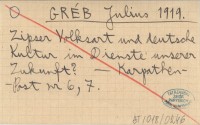 O GRÉB Julius 1919.
Zipser Volksart und deutsche
Kultur im Dienste unserer
Zukunft? — Karpathen-
Post nr 6, 7.